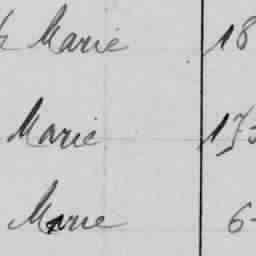 Marie 18
Marie 17
Marie 6